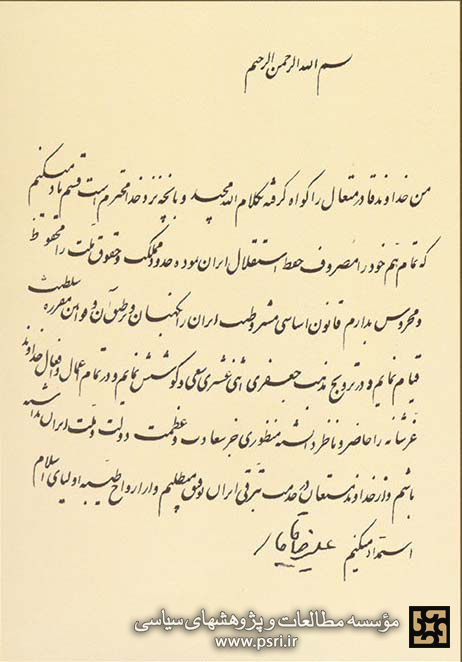 بسم الله الرحمن الرحیم
من خداوند قادر متعال را گواه گرفته بکلام الله مجید و بآنچه نزد خدا محترم است قسم یاد میکنم
که تمام هم خود را مصروف حفظ استقلال ایران نموده حدود مملکت و حقوق ملت را محفوظ
و محروس بدارم قانون اساسی مشروطیت ایران را نگهبان و بر طبق آن و قوانین مقرره سلطنت
قیام نمایم و در ترویج مذهب جعفری اثنی عشری سعی و کوشش نمایم و در تمام اعمال و افعال خداوند
عز شأنه را حاضر و ناظر دانسته منظوری جز سعادت و عظمت دولت و ملت ایران نداشته
باشم و از خداوند مستعان در خدمت بترقی ایران توفیق میطلبم و از ارواح طیبه اولیای اسلام
استمداد میکنم علیرضا قاجار
مؤسسه مطالعات و پژوهشهای سیاسی
www.psri.ir